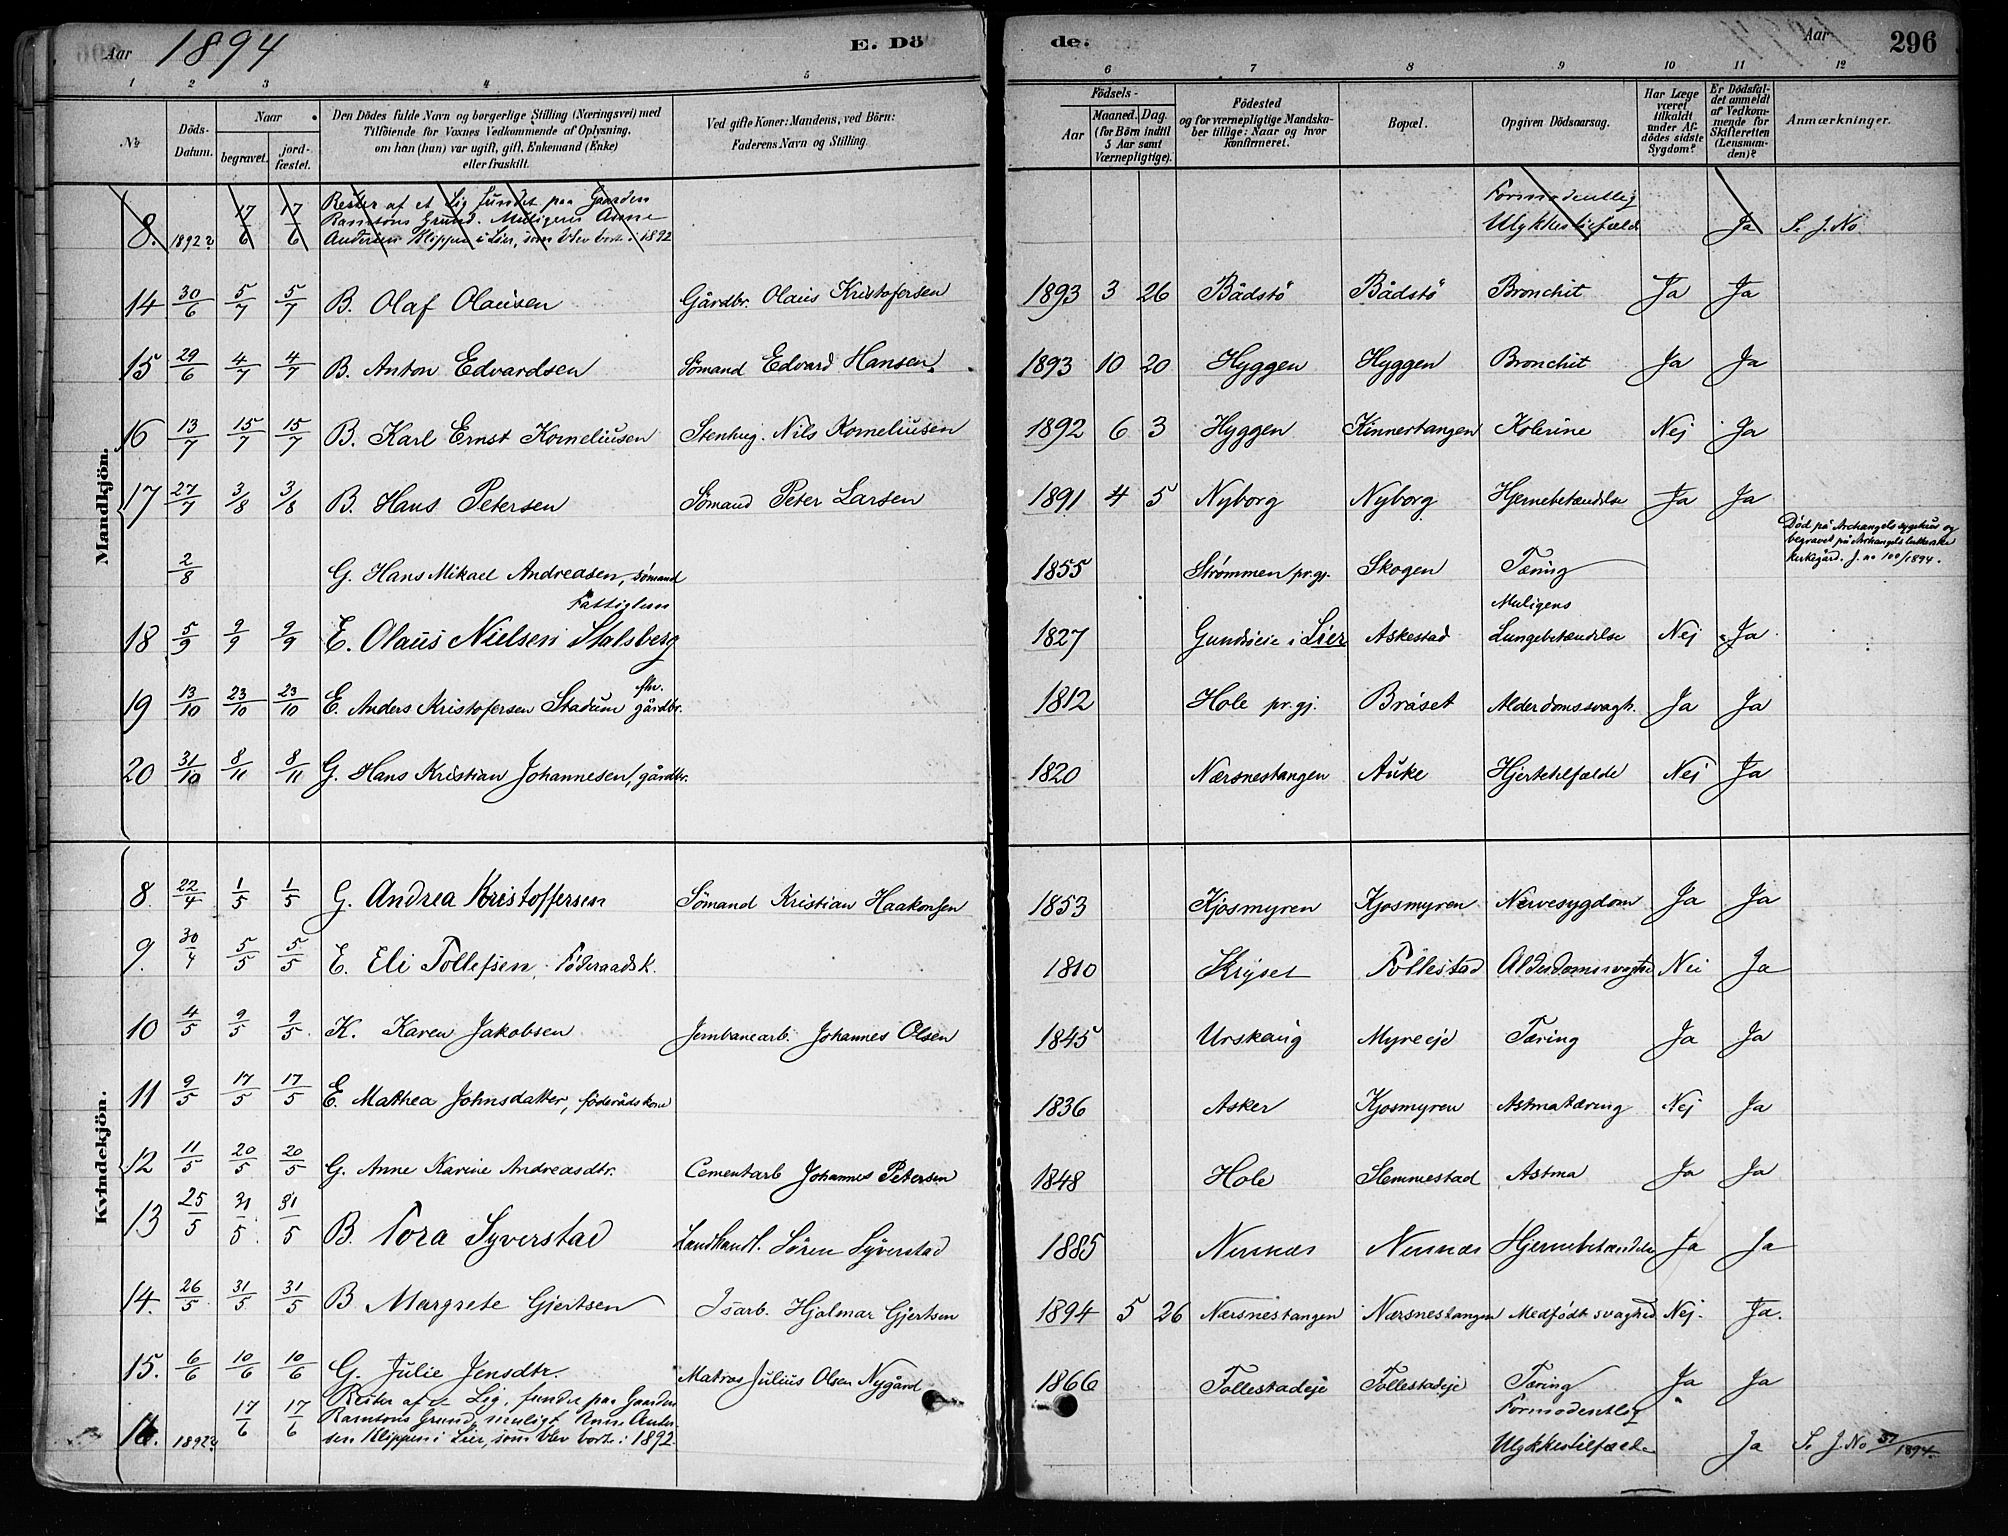 Aar 1894 E. Dö
de. Aar 296
1 2 3 4 5 6 7 8 9 10 11 12
No
Döds-Datum.
Naar
begravet.
jord-fæstet.
Den Dödes fulde Navn og borgerlige Stilling (Næringsvei) med
Tilföiende for Voxnes Vedkommende af Oplysning,
om han (hun) var ugift, gift, Enkemand (Enke)
eller fraskilt.
Ved gifte Koner: Mandens, ved Börn:
Faderens Navn og Stilling.
Födsels-
Aar
Maaned. Dag.
(for Börn indtil
5 Aar samt
Værnepligtige).
Födested
og for værnepligtige Mandska-
ber tillige: Naar og hvor
konfirmeret.
Bopæl.
Opgiven Dödsaarsag.
Har Læge
været
tilkaldt
under Af-
dödes sidste
Sygdom?
Er Dödsfal-
det anmeldt
af Vedkom-
mende for
Skifteretten
(Lensman-
den)?
Anmærkninger.
Mandkjön.
8. 1892? 17/6 17/6 Rester af et Lig fundet paa Gaarden
Ramtons Grund. Muligens Anne
Andersen Klippen i Lier, som blev borte i 1892 Formodentlig
Ulykkestilfælde Ja S. J. No
14 30/6 5/7 5/7 B. Olaf Olausen Gårdbr. Olaus Kristofersen 1893 3 26 Bådstö Bådstö Bronchit Ja Ja
15 29/6 4/7 4/7 B. Anton Edvardsen Sömand Edvard Hansen. 1893 10 20 Hyggen Hyggen Bronchit Ja Ja
16 13/7 15/7 15/7 B. Karl Ernst Korneliusen Stenhug. Nils Korneliusen 1892 6 3 Hyggen Kinnertangen Kolerine Nej Ja
17 27/7 3/8 3/8 B. Hans Petersen Sömand Peter Larsen 1891 4 5 Nyborg Nyborg Hjernebetændelse Ja Ja
2/8 G. Hans Mikael Andreasen, sömand 1855 Strømmen pr.gj. Skogen Tæring Död på Archangels sygehus og
begravet på Archangels lutherske
kirkegård. J. no 100/1894.
18 5/9 9/9 9/9 Fattiglem
E. Olaus Nielsen Stalsberg 1827 Gundsöie i Lier Askestad Muligens
Lungebetændelse Nej Ja
19 13/10 23/10 23/10 E. Anders Kristofersen Stadum fhv. gårdbr. 1812 Hole pr.gj. Bråset Alderdomssvagh. Ja Ja
20 31/10 8/11 8/11 G. Hans Kristian Johannesen, gårdbr. 1820 Nærsnestangen Auke Hjertetilfælde Nej Ja
Kvindekjön.
8. 22/4 1/5 1/5 G. Andrea Kristoffersen Sömand Kristian Haakonsen 1853 Kjosmyren Kjosmyren Nervesygdom Ja Ja
9. 30/4 5/5 5/5 E. Eli Tollefsen, Föderaadsk. 1810 Follestad Alderdomssvaghed Nei Ja
10 4/5 9/5 9/5 K. Karen Jakobsen Jernbanearb. Johannes Olsen 1845 Urskaug Myreeje Tæring Ja Ja
11 9/5 17/5 17/5 E. Mathea Johnsdatter, föderådskone 1836 Asker Kjosmyren Astmatæring Nej Ja
12 11/5 20/5 20/5 G. Anne Karine Andreasdtr. Cementarb Johannes Petersen 1848 Hole Slemmestad Astma Ja Ja
13 25/5 31/5 31/5 B. Tora Syverstad Landhandl. Sören Syverstad 1885 Nersnæs Nersnæs Hjernebetændelse Ja Ja
14. 26/5 31/5 31/5 B. Margrete Gjertsen Isarb. Hjalmar Gjertsen 1894 5 26 Nærsnestangen Nærsnestangen Medfödt svaghed Nej. Ja.
15. 6/6 10/6 10/6 G. Julie Jensdtr. Matros Julius Olsen Nygård 1866 Follestadeje Follestadeje Tæring Ja Ja
16. 1892? 17/6 17/6 Rester af et Lig, fundet paa Gaarden
Ramtons Grund, muligt Anne Ander-
sen Klippen i Lier, som blev borte i 1892. Formodentlig
Ulykkestilfælde Ja S. J. No 51/1894.